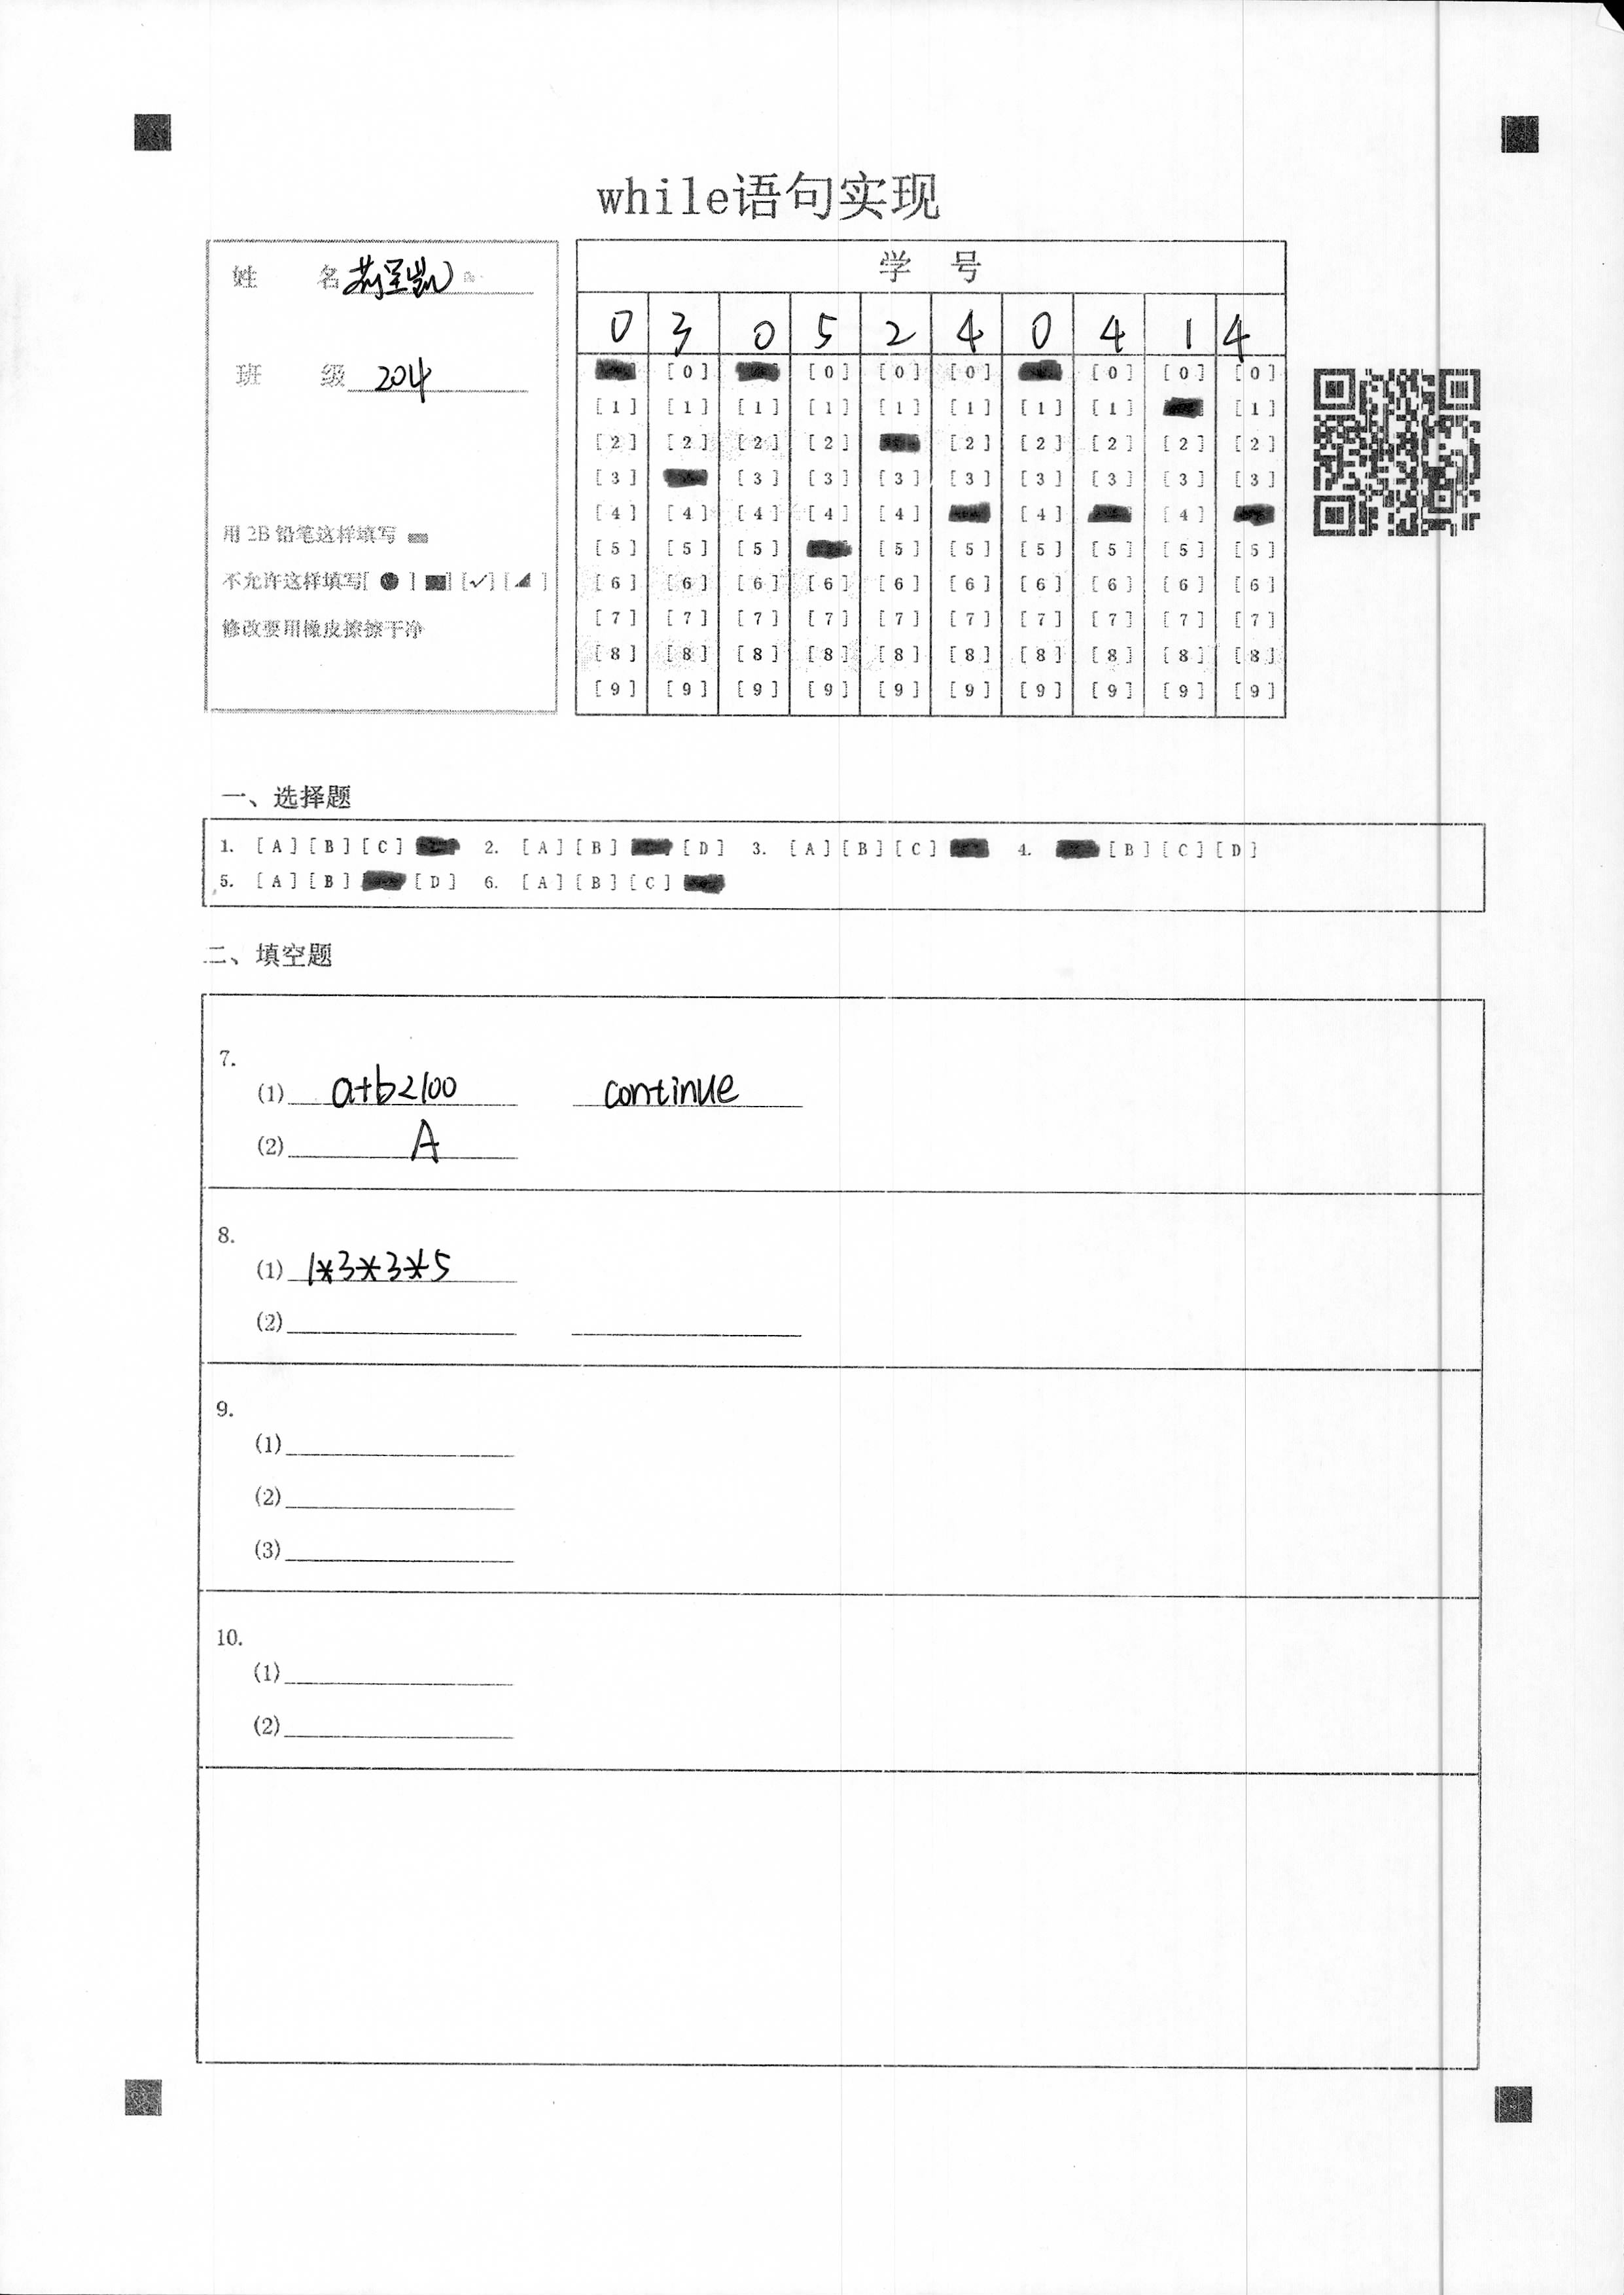 while语句实现
姓 名
班 级 204
用 2B 铅笔这样填写
不允许这样填写[ ● ] [■] [✓] [◢ ]
修改要用橡皮擦擦干净
学 号
0 3 0 5 2 4 0 4 1 4
[0] [0] [0] [0] [0] [0] [0]
[1] [1] [1] [1] [1] [1] [1] [1] [1]
[2] [2] [2] [2] [2] [2] [2] [2] [2]
[3] [3] [3] [3] [3] [3] [3] [3] [3]
[4] [4] [4] [4] [4] [4] [4]
[5] [5] [5] [5] [5] [5] [5] [5] [5]
[6] [6] [6] [6] [6] [6] [6] [6] [6] [6]
[7] [7] [7] [7] [7] [7] [7] [7] [7] [7]
[8] [8] [8] [8] [8] [8] [8] [8] [8] [8]
[9] [9] [9] [9] [9] [9] [9] [9] [9] [9]
一、选择题
1. [A] [B] [C] 2. [A] [B] [D] 3. [A] [B] [C] 4. [B] [C] [D]
5. [A] [B] [D] 6. [A] [B] [C]
二、填空题
7.
(1) a+b<100 continue
(2) A
8.
(1) 1*3*3*5
(2)
9.
(1)
(2)
(3)
10.
(1)
(2)